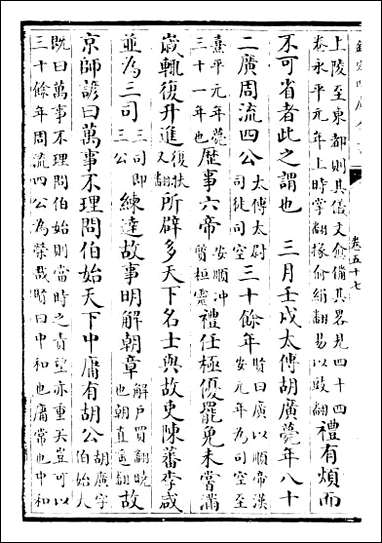 卷五十七
上陵至東都則其儀文愈備其畧見四十四
卷永平元年上時掌翻掾俞絹翻易以豉翻
禮有煩而
不可省者此之謂也　三月壬戌太傅胡廣薨年八十
二廣周流四公
太傅太尉
司徒司空
三十餘年
時曰廣以順帝漢
安元年為司空至
熹平元年薨
三十一年也
歷事六帝
安順冲
質桓靈
禮任極優罷免未嘗滿
歲輒復升進
復扶
又翻
所辟多天下名士與故吏陳蕃李咸
並為三司
三司即
三公
練達故事明解朝章
解戶買翻曉
也朝直遙翻
故
京師諺曰萬事不理問伯始天下中庸有胡公
胡廣字
伯始人
既曰萬事不理問伯始則當時之責望亦重矣豈可以
三十餘年周流四公為榮哉時曰中和也庸常也中和